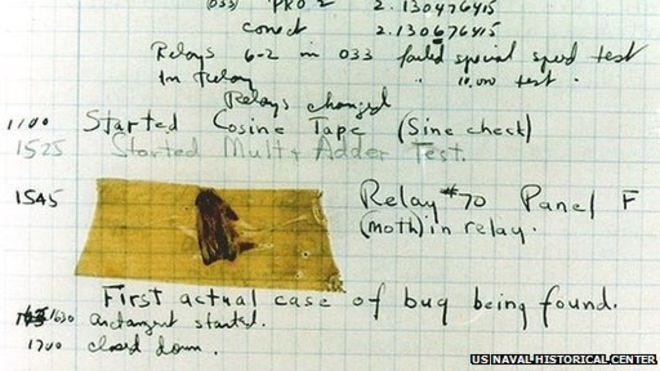 (033) PRO 2 2.130476415
conect 2.130676415
Relays 6-2 in 033 failed special speed test
In Relay " 10,000 test .
Relays changed
1100 Started Cosine Tape (Sine check)
1525 Started Mult + Adder Test.
1545 Relay #70 Panel F
(moth) in relay.
First actual case of bug being found.
1630 arctangent started.
1700 closed down .
US NAVAL HISTORICAL CENTER